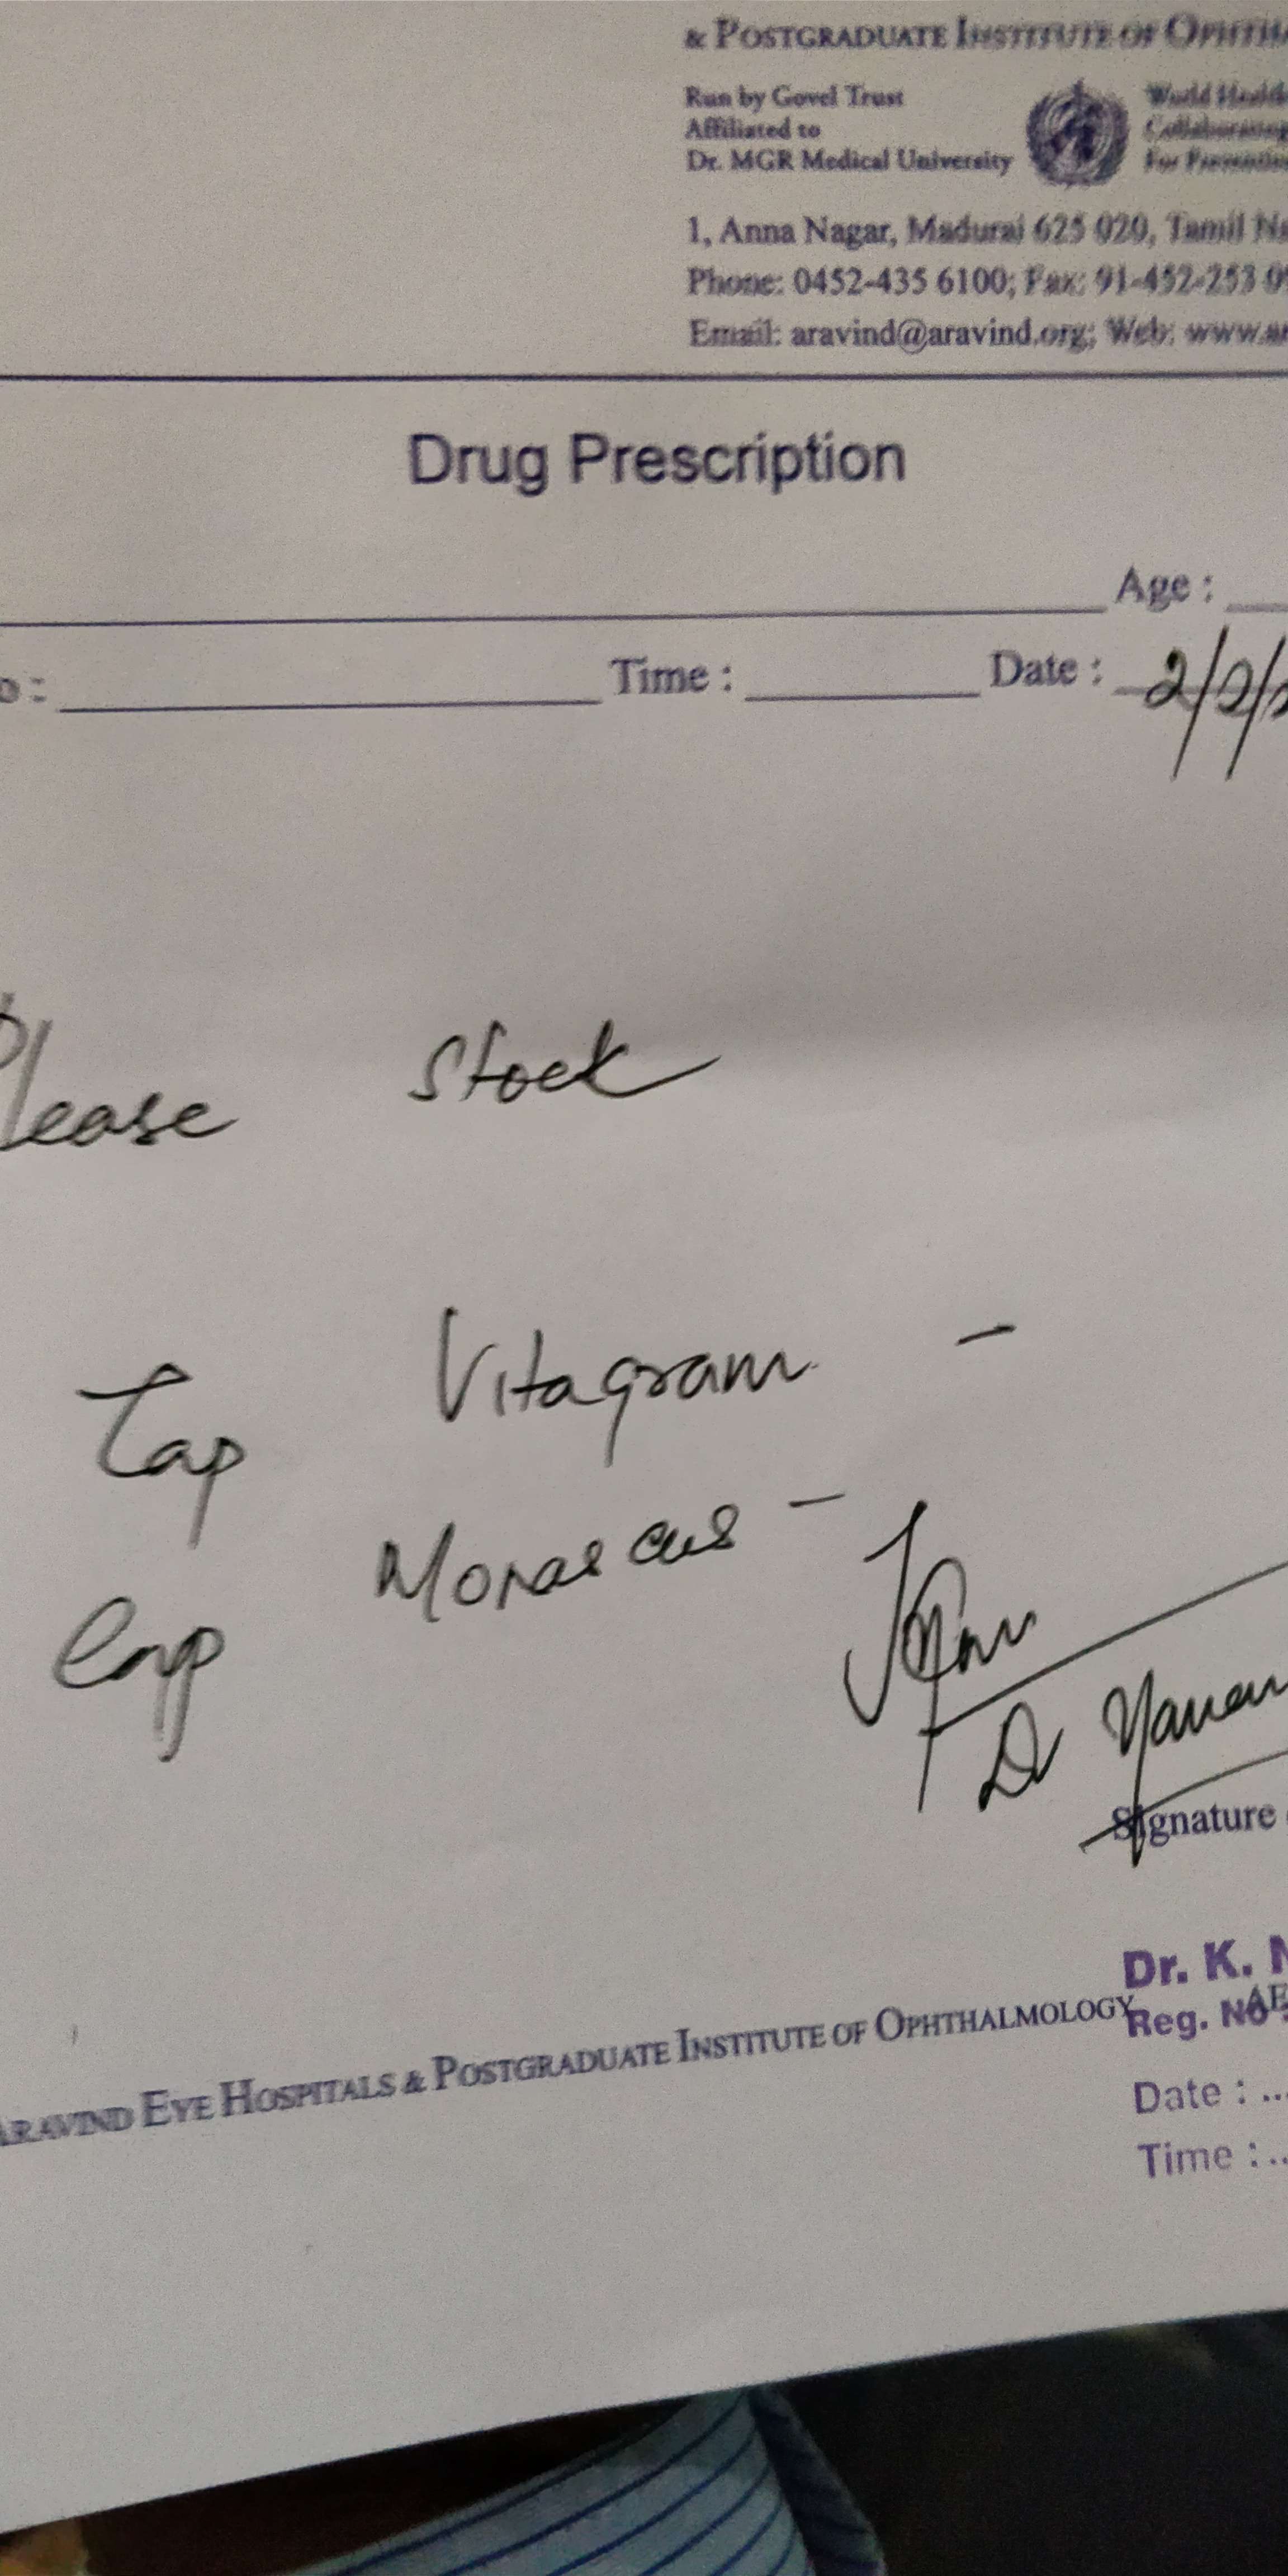 & POSTGRADUATE INSTITUTE OF OPHTH
Run by Govel Trust
Affiliated to
Dr. MGR Medical University
World Health
Collaborating
For Prevention
1, Anna Nagar, Madurai 625 020, Tamil Na
Phone: 0452-435 6100; Fax: 91-452-253 09
Email: aravind@aravind.org; Web: www.ar
Drug Prescription
Age :
o : Time : Date : 2/2/2
Please Stock
Tap Vitagram -
Cap Monascus -
Dr
Signature
Dr. K. N
Reg. No
ARAVIND EYE HOSPITALS & POSTGRADUATE INSTITUTE OF OPHTHALMOLOGY AE
Date : ..
Time : ..